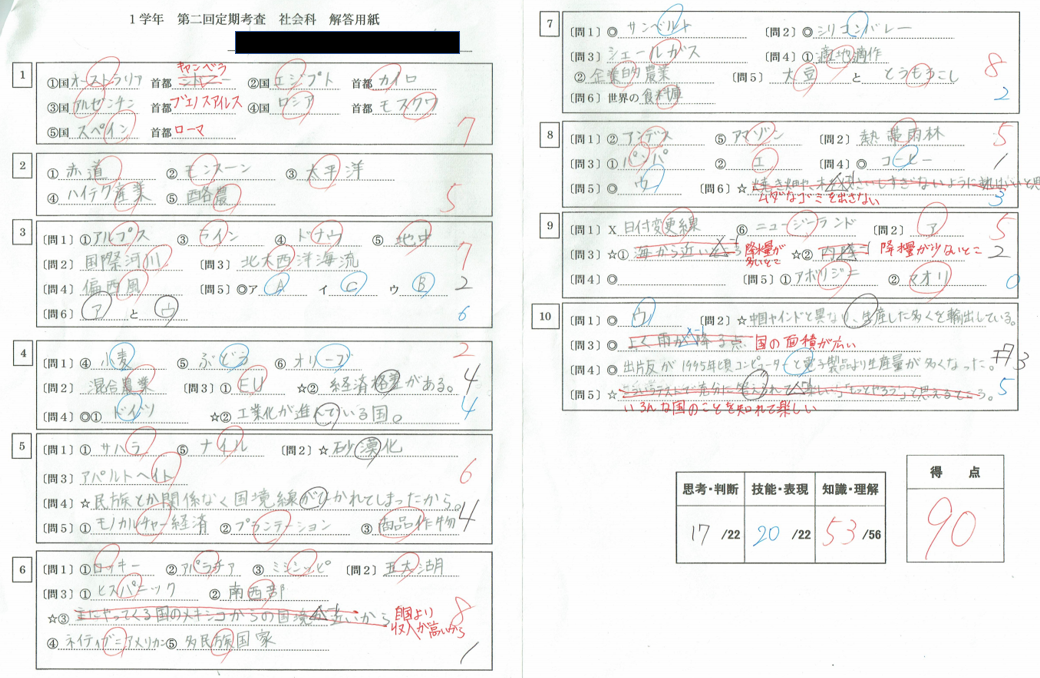 1学年 第二回定期考査 社会科 解答用紙
1
①国 オーストラリア 首都 キャンベラ ②国 エジプト 首都 カイロ
③国 アルゼンチン 首都 ブエノスアイレス ④国 ロシア 首都 モスクワ
⑤国 スペイン 首都 ローマ
7
2
① 赤道 ② モンスーン ③ 太平洋
④ ハイテク産業 ⑤ 酪農
5
3
〔問1〕①アルプス ③ ライン ④ ドナウ ⑤ 地中
〔問2〕国際河川 〔問3〕北大西洋海流
7
〔問4〕偏西風 〔問5〕◎ア A イ C ウ B
2
〔問6〕 ア と ウ
6
4
〔問1〕④ 小麦 ⑤ ぶどう ⑥ オリーブ
2
〔問2〕混合農業 〔問3〕① EU ☆② 経済格差がある。
4
〔問4〕◎① ドイツ ☆② 工業化が進んでいる国。
4
5
〔問1〕① サハラ ⑤ ナイル 〔問2〕☆ 砂漠化
〔問3〕アパルトヘイト
6
〔問4〕☆民族とか関係なく国境線がひかれてしまったから。
〔問5〕① モノカルチャー経済 ② プランテーション ③ 商品作物
4
6
〔問1〕①ロッキー ②アパラチア ③ ミシシッピ 〔問2〕五大湖
〔問3〕① ヒスパニック ② 南西部
☆③ 主にやってくる国のメキシコからの国境に近いから 自国より収入が高いから
8
④ ネイティブアメリカン ⑤ 多民族国家
1
7
〔問1〕◎ サンベルト 〔問2〕◎シリコンバレー
〔問3〕シェールガス 〔問4〕①適地適作
② 企業的農業 〔問5〕 大豆 と とうもろこし
8
〔問6〕世界の食料庫
2
8
〔問1〕② アンデス ⑤ アマゾン 〔問2〕熱帯雨林
5
〔問3〕① パンパ ② エ 〔問4〕◎ コーヒー
1
〔問5〕◎ ウ 〔問6〕☆
3
ムダなゴミを出さない
9
〔問1〕X 日付変更線 ⑥ ニュージーランド 〔問2〕 ア
5
〔問3〕☆① 海から近い 降水量が多いとこ ☆② 内陸 降水量が少ないとこ
2
〔問4〕◎ 〔問5〕① アボリジニ ② マオリ
0
10
〔問1〕◎ ウ 〔問2〕☆中国やインドと異なり、生産した多くを輸出している。
〔問3〕◎ よく雨が降る点 国の面積が広い
〔問4〕◎ 出版反が1995年頃コンピュータと電子製品より生産量が多くなった。
3
〔問5〕☆
5
いろんな国のことを知れて楽しい
思考・判断 技能・表現 知識・理解
17 /22 20 /22 53 /56
得 点
90